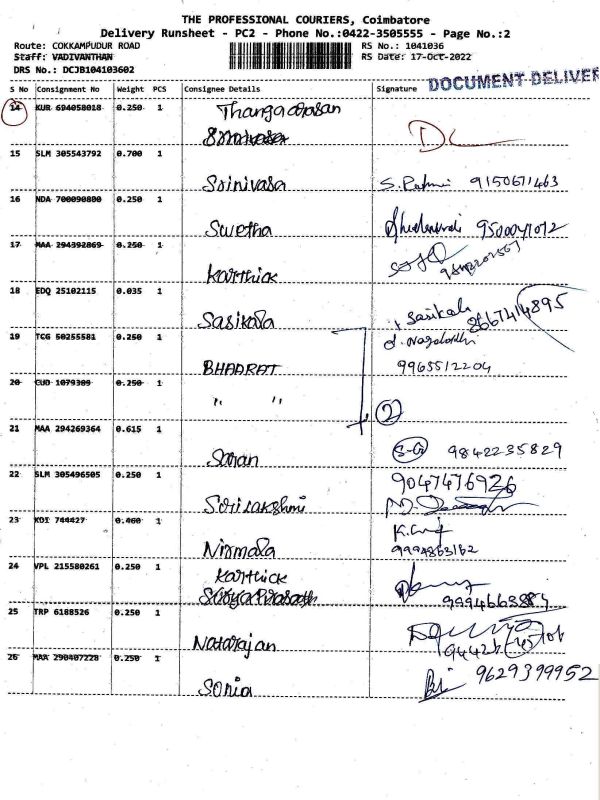 THE PROFESSIONAL COURIERS, Coimbatore
Delivery Runsheet - PC2 - Phone No.:0422-3505555 - Page No.:2
Route: COKKAMPUDUR ROAD RS No.: 1041036
Staff: VADIVANTHAN RS Date: 17-Oct-2022
DRS No.: DCJB104103602
DOCUMENT DELIVER
S No Consignment No Weight PCS Consignee Details Signature
14 KUR 694058018 0.250 1 Thangadrasan
DC
15 SLM 305543792 0.700 1
Srinivasa 9150671463
16 NDA 700090800 0.250 1
Swetha
17 MAA 294392869 0.250 1
Karthick
18 EDQ 25102115 0.035 1
Sasikala Sasikala 8667414895
19 TCG 50255581 0.250 1
BHARAT 9965512204
20 CUD 1079309 0.250 1
" "
2
21 MAA 294269364 0.615 1
Saran S-G 9842235829
22 SLM 305496505 0.250 1 9047476926
Srilakshmi
23 KDI 744427 0.460 1
Nirmala 9994863162
24 VPL 215580261 0.250 1 Karthick
25 TRP 6188526 0.250 1
Natarajan
26 MAA 290407228 0.250 1 9629399952
Sonia